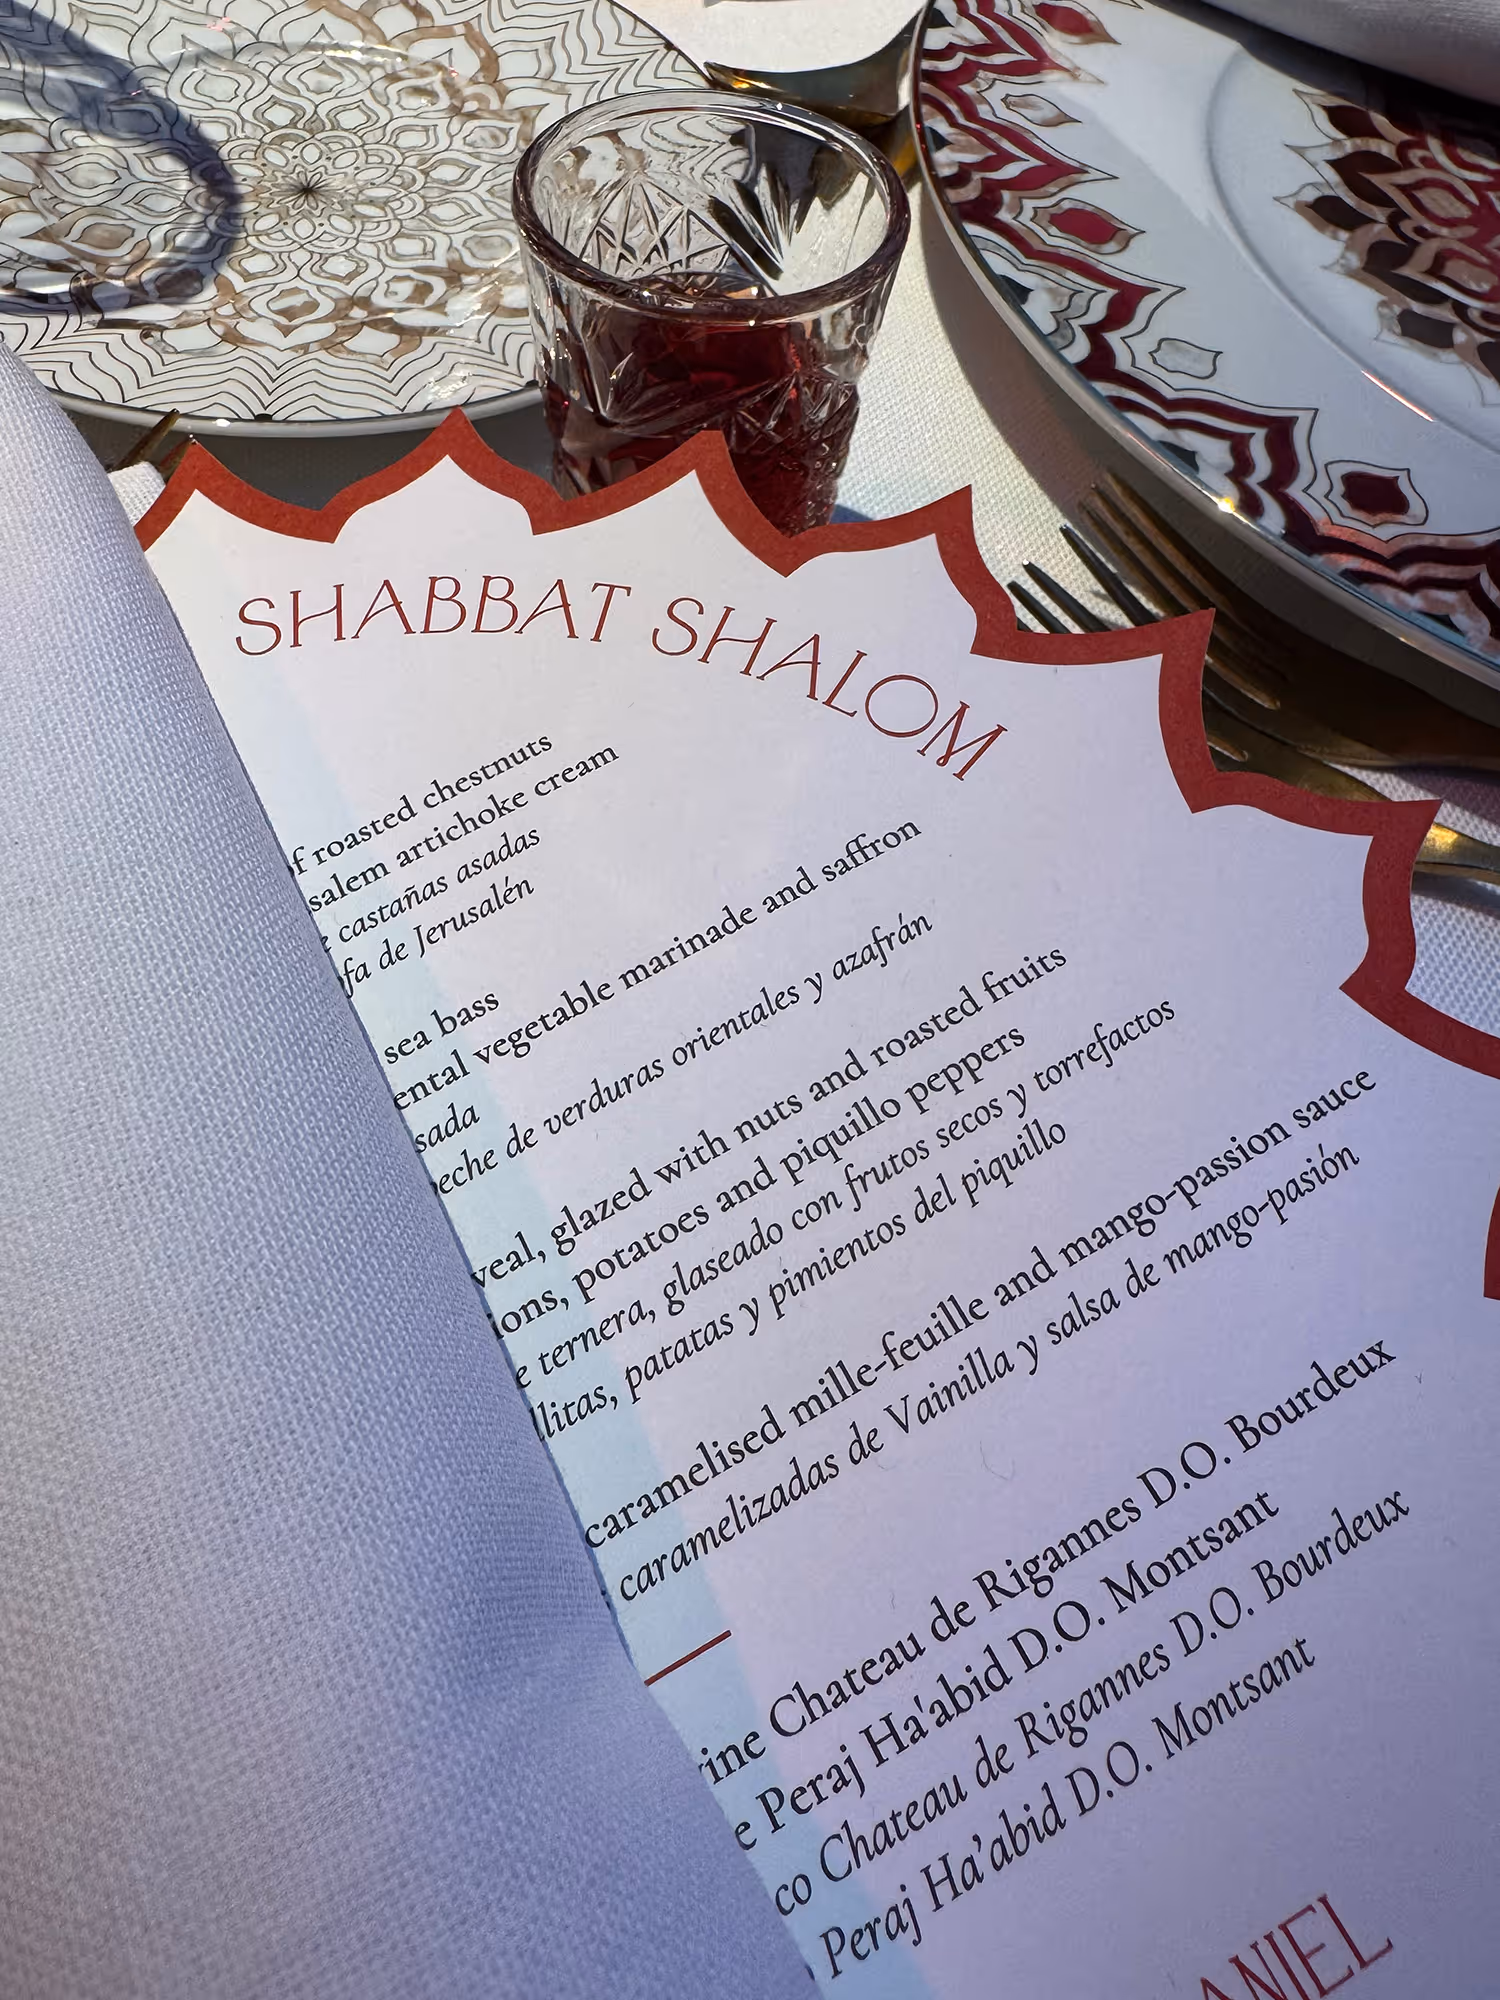 SHABBAT SHALOM
of roasted chestnuts
salem artichoke cream
e castañas asadas
ofa de Jerusalén
sea bass
ental vegetable marinade and saffron
sada
eche de verduras orientales y azafrán
veal, glazed with nuts and roasted fruits
ions, potatoes and piquillo peppers
e ternera, glaseado con frutos secos y torrefactos
llitas, patatas y pimientos del piquillo
caramelised mille-feuille and mango-passion sauce
caramelizadas de Vainilla y salsa de mango-pasión
ine Chateau de Rigannes D.O. Bourdeux
e Peraj Ha'abid D.O. Montsant
co Chateau de Rigannes D.O. Bourdeux
Peraj Ha'abid D.O. Montsant
ANIEL